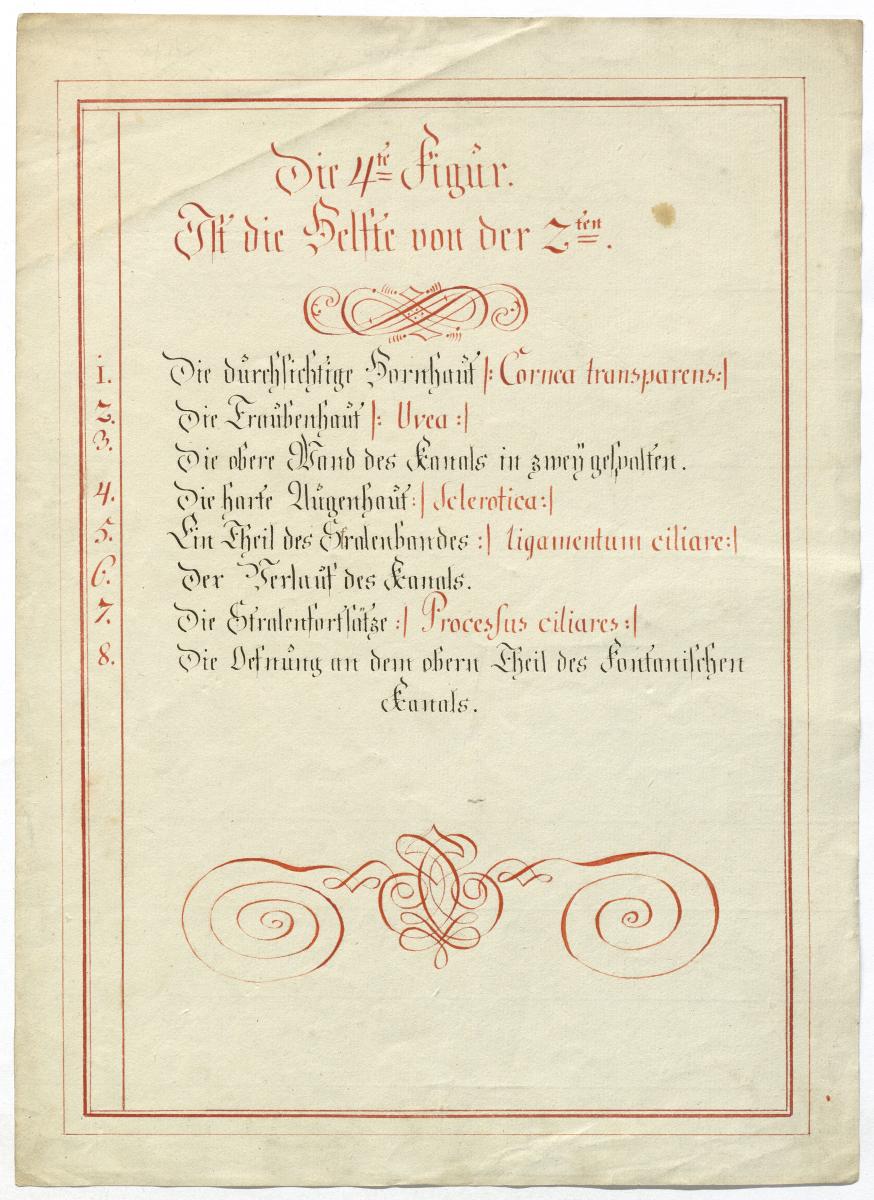 Die 4te Figur.
Ist die Helfte von der 2ten.
1. Die durchsichtige Hornhaut |: Cornea transparens:|
2. Die Traubenhaut |: Uvea :|
3. Die obere Wand des Kanals in zweÿ gespalten.
4. Die harte Augenhaut :| Sclerotica:|
5. Ein Theil des Stralenbandes :| ligamentum ciliare:|
6. Der Verlauf des Kanals.
7. Die Stralenfortsätze :| Processus ciliares :|
8. Die Oefnung an dem obern Theil des Fontanischen
Kanals.